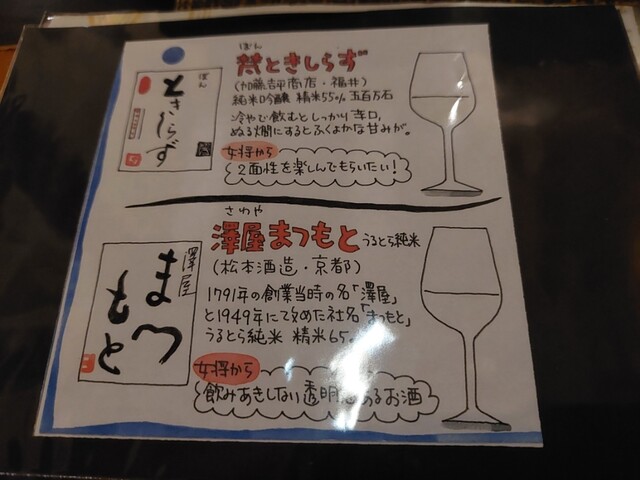 ぼん
梵ときしらず
(加藤吉平商店・福井)
純米吟醸 精米55% 五百万石
冷やで飲むとしっかり辛口、
ぬる燗にするとふくよかな甘みが。
女将から
2面性を楽しんでもらいたい!
ぼん
ときしらず
さわや
澤屋まつもと うるとら純米
(松本酒造・京都)
1791年の創業当時の名「澤屋」
と1949年にて改めた社名「まつもと」
うるとら純米 精米65
女将から
飲みあきしない透明感あるお酒
澤屋
まつ
もと